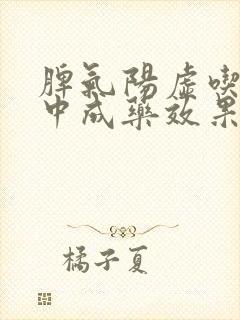 脾氣陽虛喫
中成藥效果
橘子夏